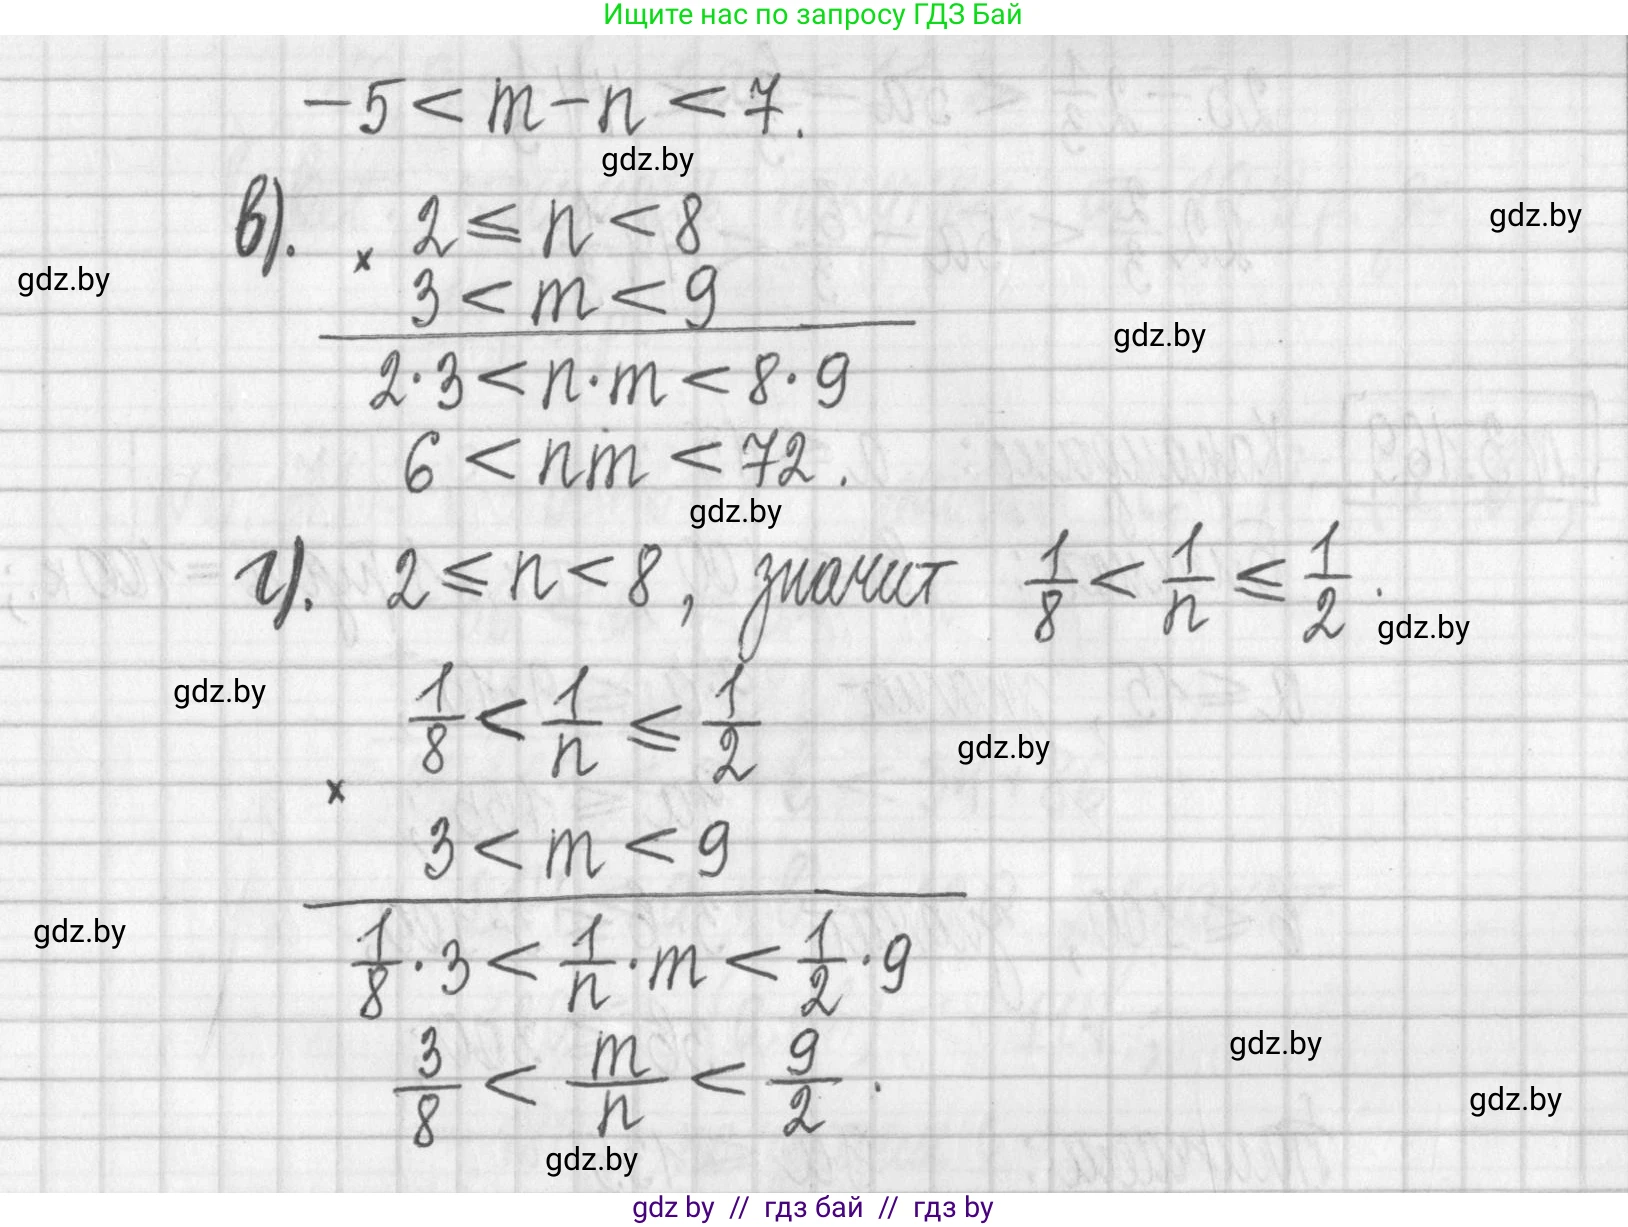 Ищите нас по запросу ГДЗ Бай
-5 < m - n < 7.
gdz.by
в). 2 ≤ n < 8
gdz.by
×
gdz.by
3 < m < 9
gdz.by
2·3 < n·m < 8·9
6 < nm < 72.
gdz.by
г). 2 ≤ n < 8, значит 1/8 < 1/n ≤ 1/2.
gdz.by
gdz.by
1/8 < 1/n ≤ 1/2
gdz.by
×
3 < m < 9
gdz.by
1/8 · 3 < 1/n · m < 1/2 · 9
gdz.by
3/8 < m/n < 9/2.
gdz.by
gdz.by
gdz by // гдз бай // гдз by